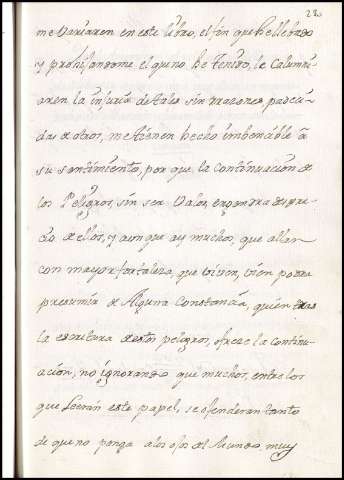 22
me dariaren en este libro, el fin que he llebado
y prohijandome el que no he tenido, le calumni-
aren la injuria de tales sin razones, padeci-
das de otros, me tienen hecho
su sentimiento, por que la continuacion de
los Peligros, sin ser Dalos, engendra despre-
cio de ellos, y aunque ay muchos, que allan
con mayor fortaleza, que vivir, vien podra
presumir de Alguna Constancia, quien tras
la escritura destos peligros, ofrece la continu-
acion, no ignorando que muchos, entre los
que Leerán este papel, se ofenderan tanto
de que no ponga a los ojos del Mundo muy